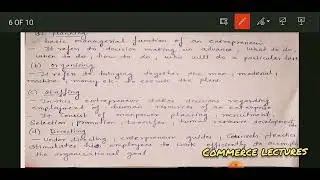 6 OF 10
(a) Planning
- basic managerial function of an entrepreneur
- It refers to decision making in advance, what to do,
when to do, how to do, who will do a particular task
(b) Organising
- It refer to bringing together the man, material,
machine, money etc. to execute the plans
(c) Staffing
- Under entrepreneur takes decisions regarding
employment of human resources of an enterprise
It consist of manpower planning, recruitment,
Selection, promotion, transfer, human resource development
(d) Directing
- Under directing, entrepreneur guides, teaches
stimulates his employees to work efficiently to
the organisational goal
COMMERCE LECTURES